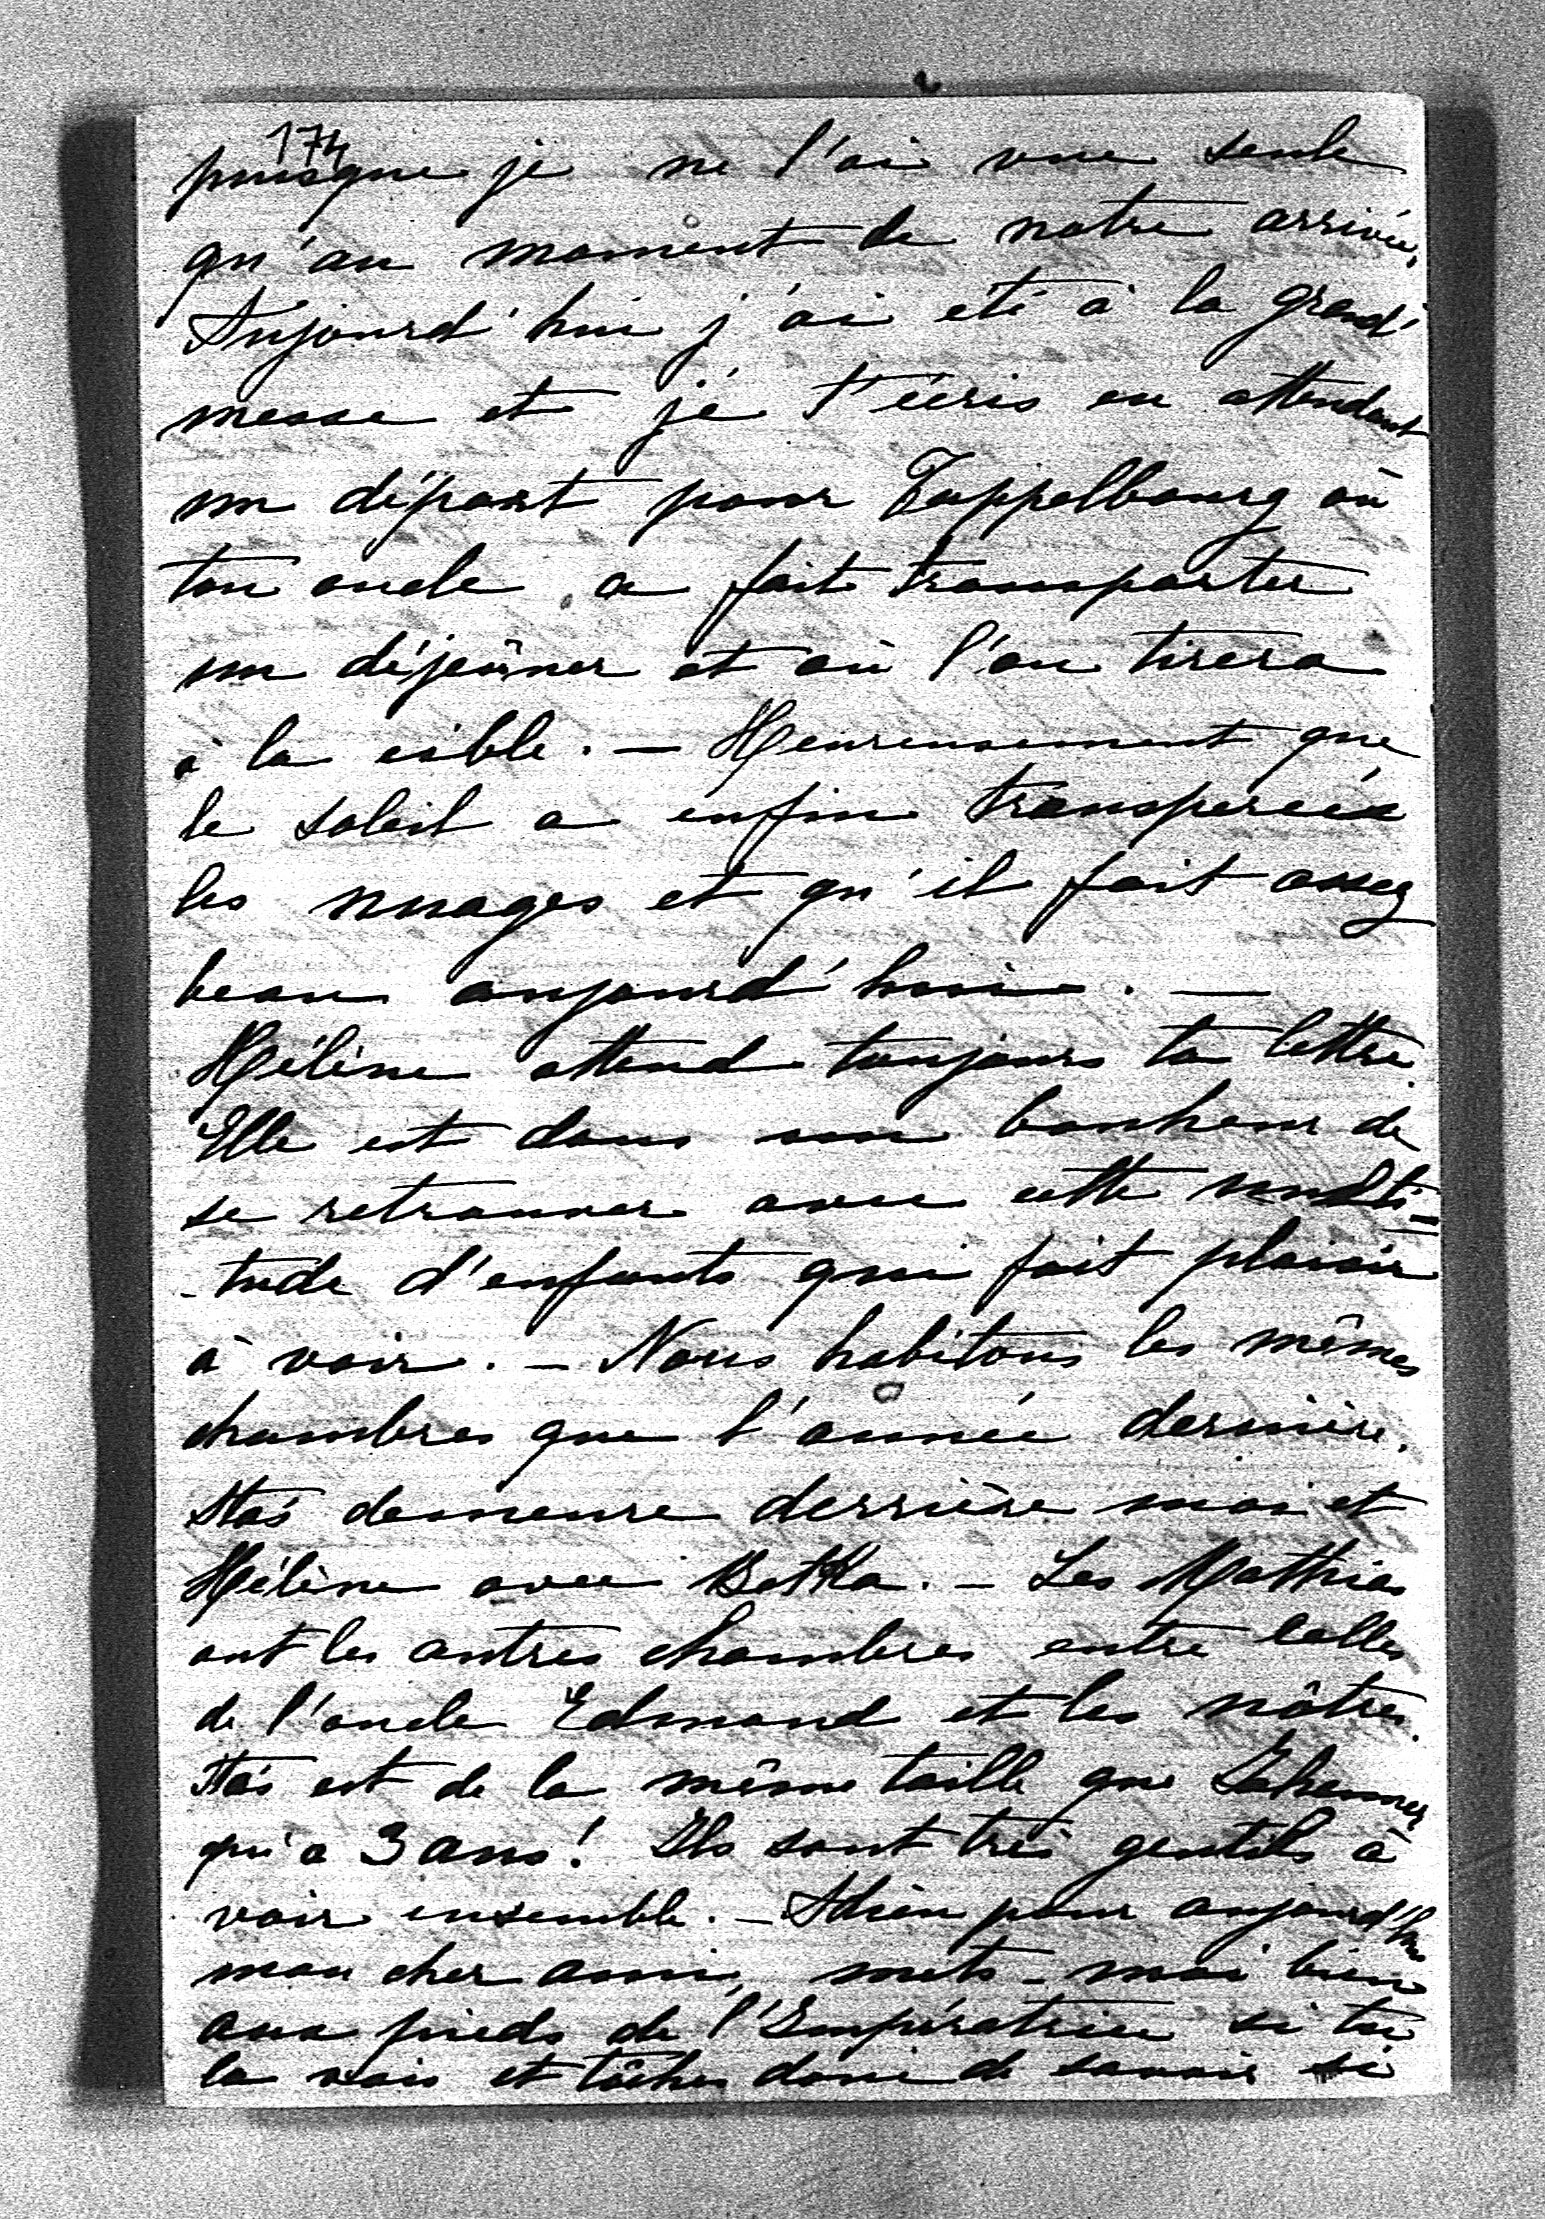 174
puisque je ne l'ai vue seule
qu'au moment de notre arrivée.
Aujourd'hui j'ai été à la grand'
messe et je t'écris en attendant
un départ pour Tappelbourg où
ton oncle a fait transporter
un déjeûner et où l'on tirera
à la cible. — Heureusement que
le soleil a enfin transpercés
les nuages et qu'il fait assez
beau aujourd'hui. —
Hélène attend toujours ta lettre.
Elle est dans son bonheur de
se retrouver avec cette multi=
-tude d'enfants qui fait plaisir
à voir. - Nous habitons les mêmes
chambres que l'année dernière.
Stas demeure derrière moi et
Hélène avec Betka. - Les Mathias
ont les autres chambres entre celles
de l'oncle Edmond et les nôtres.
Stas est de la même taille que
qui a 3 ans! Ils sont très gentils à
voir ensemble. - Adieu pour aujourd'hui
mon cher ami, mets-moi bien
aux pieds de l'Impératrice si tu
la vois et tâches donc de savoir si